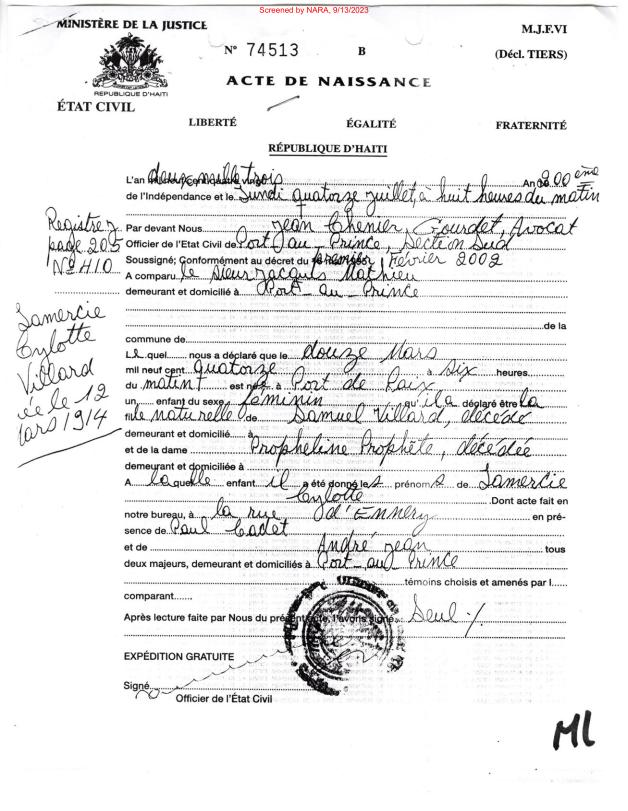 Screened by NARA, 9/13/2023
MINISTÈRE DE LA JUSTICE
M.J.F.VI
N° 74513 B
(Décl. TIERS)
ACTE DE NAISSANCE
REPUBLIQUE D'HAITI
ÉTAT CIVIL
LIBERTÉ ÉGALITÉ FRATERNITÉ
RÉPUBLIQUE D'HAITI
L'an deux mille trois An 200 ème
de l'Indépendance et le Lundi quatorze juillet, à huit heures du matin
Registre
page 205
N° 410
Par devant Nous Jean Chenier, Gourdet, Avocat
Officier de l'Etat Civil de Port-au-Prince, Section Sud
Soussigné; Conformément au décret du Février 2002
A comparu le sieur Jacques Mathieu
demeurant et domicilié à Port-au-Prince
de la
commune de
Lequel nous a déclaré que le douze Mars
mil neuf cent quatorze à six heures
du matin est née à Port de Paix
un enfant du sexe féminin qu'il a déclaré être la
fille naturelle de Samuel Villard, décédé
demeurant et domicilié à
et de la dame Propheline Prophète, décédée
demeurant et domiciliée à
A laquelle enfant il a été donné les prénoms de Lamercie
Cylotte .Dont acte fait en
notre bureau, à la rue d'Ennery en pré-
sence de Paul Cadet
et de André Jean tous
deux majeurs, demeurant et domiciliés à Port-au-Prince
témoins choisis et amenés par l
comparant
Après lecture faite par Nous du présent acte, l'avons signé. Seul ./.
EXPÉDITION GRATUITE
Signé
Officier de l'État Civil
Lamercie
Cylotte
Villard
ée le 12
ars 1914
Ml